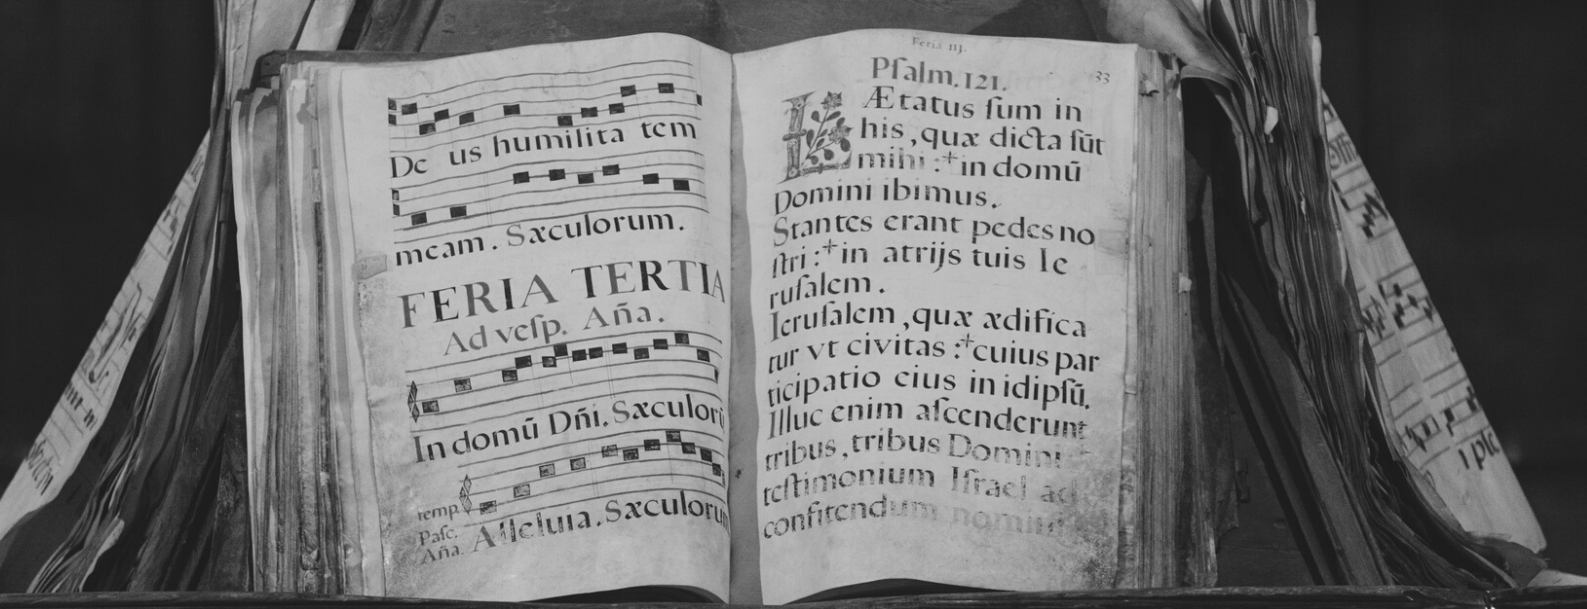 De us humilita tem
meam. Sæculorum.
FERIA TERTIA
Ad veſp. Aña.
In domũ Dñi. Sæculorũ
temp.
Paſc.
Aña. Alleluia. Sæculorum
Feria IIJ.
33
Pſalm. 121.
LÆtatus ſum in
his, quæ dicta ſũt
mihi :+ in domũ
Domini ibimus.
Stantes erant pedes no
ſtri :+ in atrijs tuis Ie
ruſalem.
Ieruſalem, quæ ædifica
tur vt civitas :+ cuius par
ticipatio eius in idipſũ.
Illuc enim aſcenderunt
tribus, tribus Domini
teſtimonium Iſrael ad
confitendum nomini